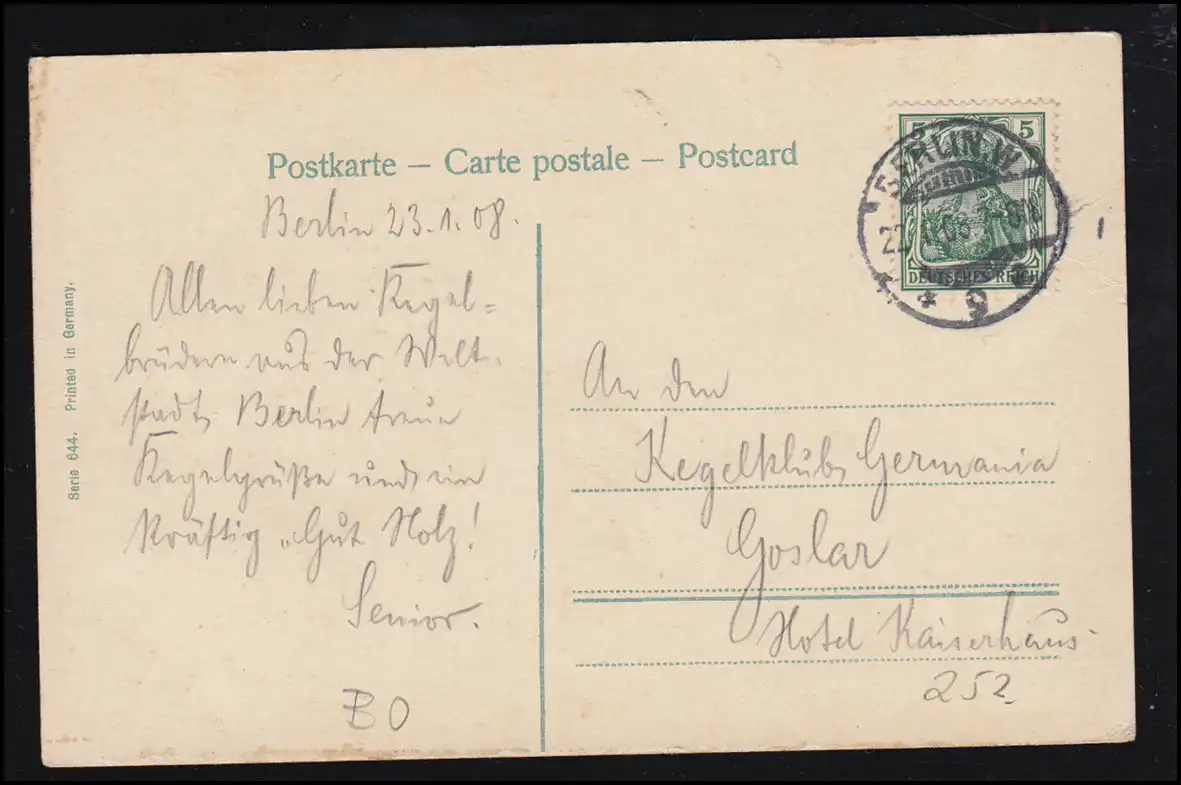 Postkarte – Carte postale – Postcard
Berlin 23.1.08.
Allen lieben Kegel=
brüdern aus der Welt-
stadt Berlin treue
Kegelgrüße und ein
kräftig „Gut Holz!
Senior.
BO
Serie 644. Printed in Germany.
5 5
BERLIN.W.
DEUTSCHES REICH
* 9
An den
Kegelklub Germania
Goslar
Hotel Kaiserhaus
252